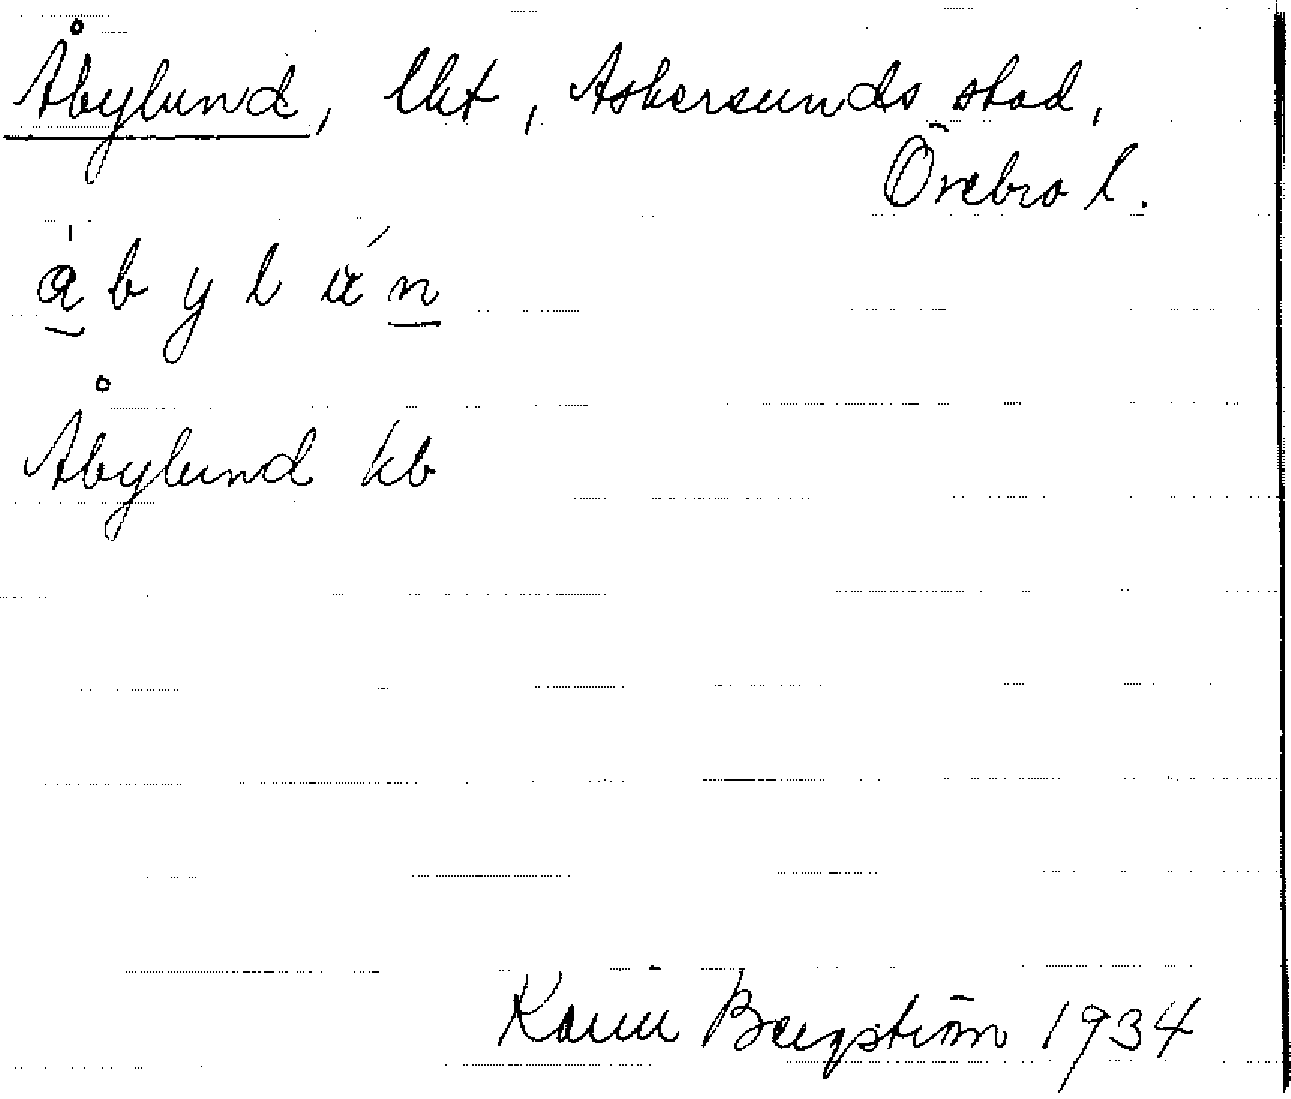 Åbylund, lht, Askersunds stad,
Örebro l.
Åbylund kb
Karin Bergström 1934